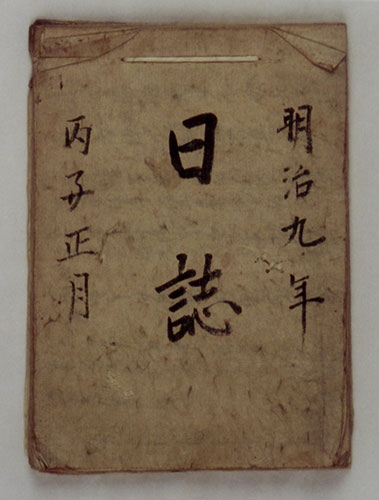 明治九年
日誌
丙子正月